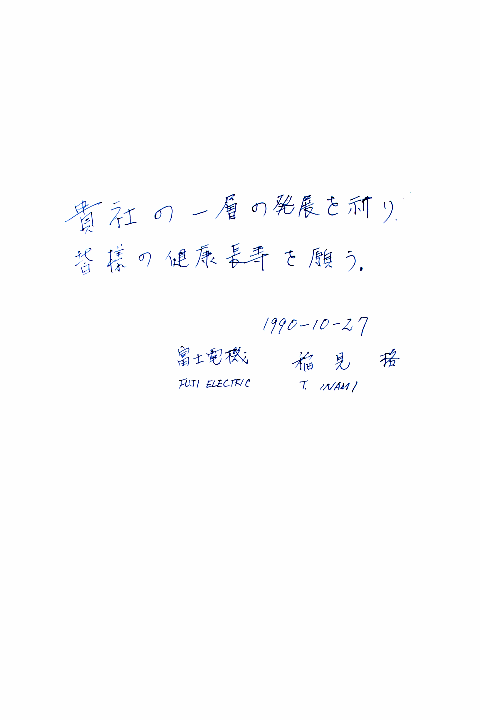 貴社の一層の発展を祈り、
皆様の健康長寿を願う。
1990-10-27
富士電機 稲見 格
FUJI ELECTRIC T. INAMI